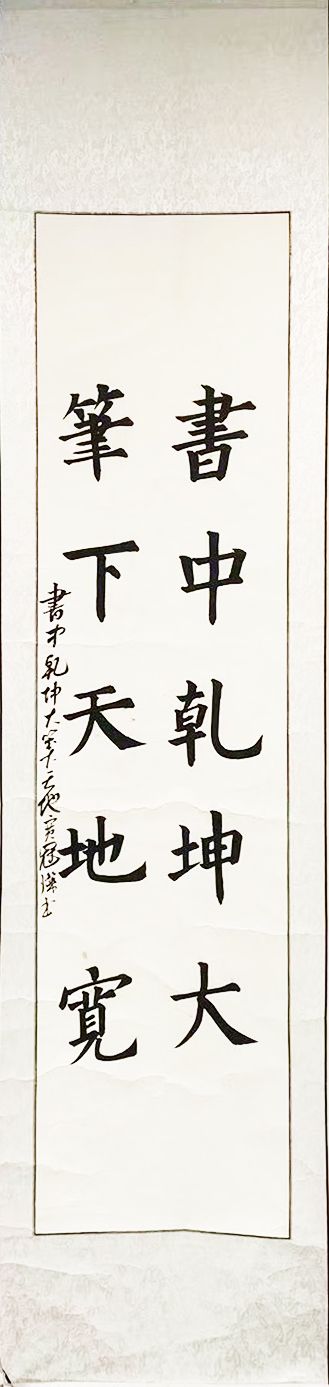 書中乾坤大
筆下天地寬
書中乾坤大筆下天地寬